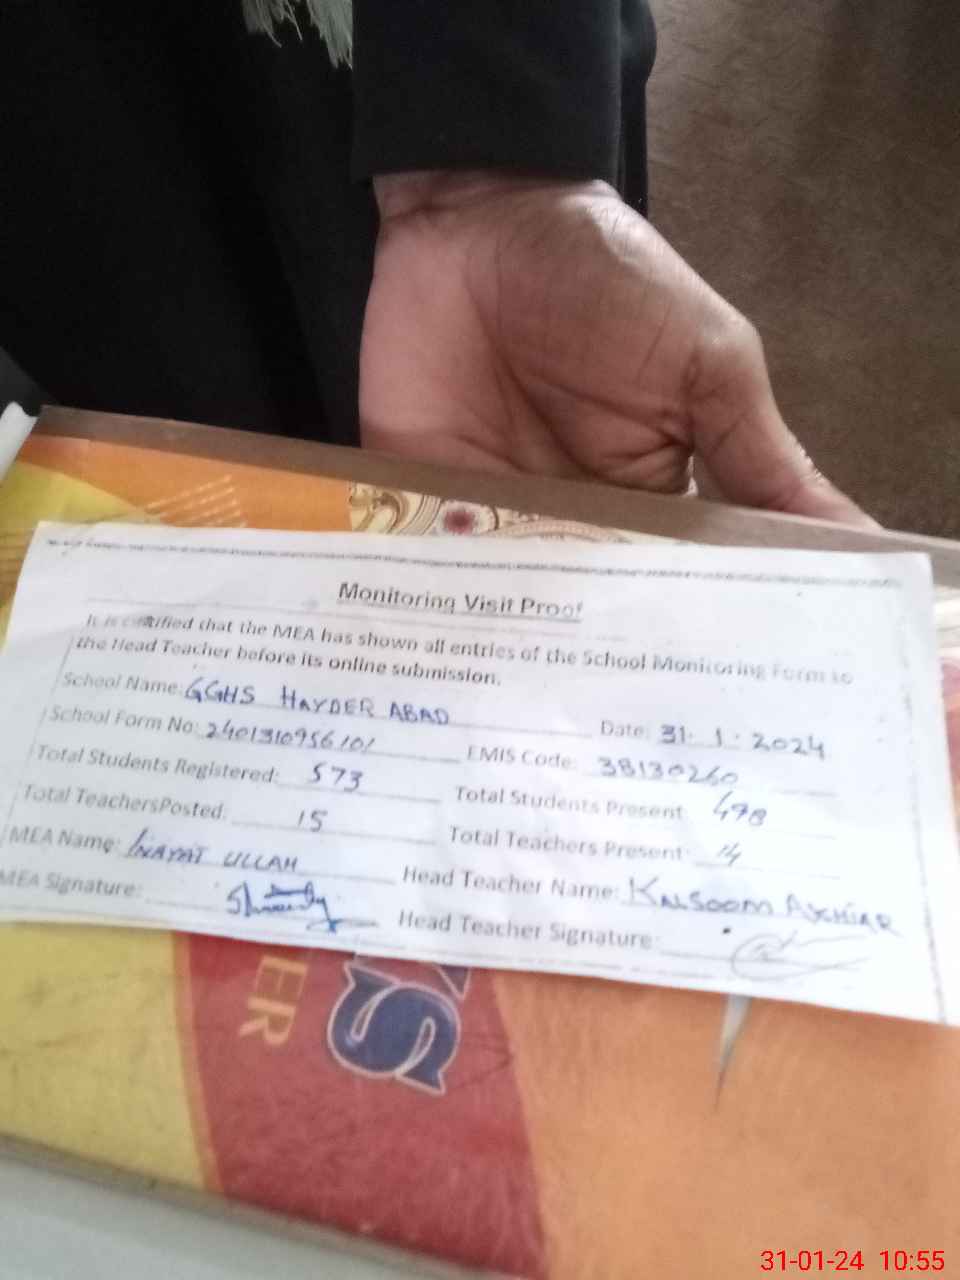 Monitoring Visit Proof
It is certified that the MEA has shown all entries of the School Monitoring Form to
the Head Teacher before its online submission.
School Name: GGHS HAYDER ABAD Date: 31. 1. 2024
School Form No: 2401310956101 EMIS Code: 38130260
Total Students Registered: 573 Total Students Present: 498
Total TeachersPosted: 15 Total Teachers Present: 14
MEA Name: INAYAT ULLAH Head Teacher Name: KALSOOM
MEA Signature: Head Teacher Signature:
S
ER
31-01-24 10:55